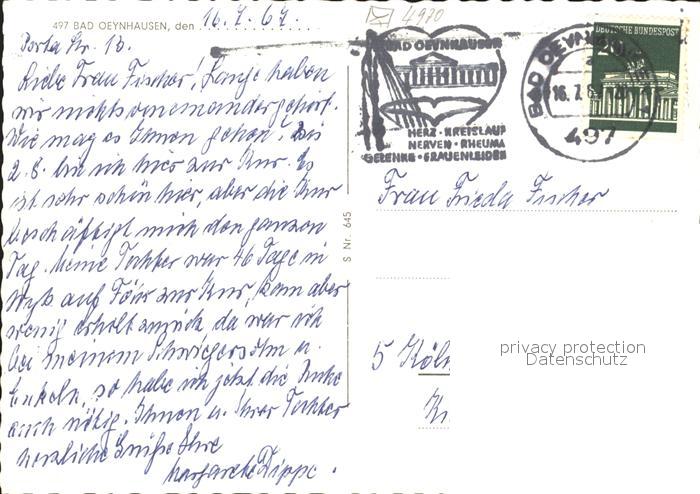 497 BAD OEYNHAUSEN, den 16.7.67.
Porta Str. 13.
Liebe Frau Fischer! Lange haben
wir nichts voneinander gehört.
Wie mag es Ihnen gehen? Bis
2.8. bin ich hier zur Kur. Es
ist sehr schön hier, aber die Kur
beschäftigt mich den ganzen
Tag. Meine Tochter war 46 Tage in
Wyk auf Föhr zur Kur, kam aber
wenig erholt zurück, da war ich
bei meinem Schwiegersohn u.
Enkeln, so habe ich jetzt die Ruhe
auch nötig. Ihnen u. Ihrer Tochter
herzliche Grüße Ihre
Margarete Zippe.
S Nr. 645
4970
BAD OEYNHAUSEN
HERZ · KREISLAUF
NERVEN · RHEUMA
GELENKE · FRAUENLEIDEN
BAD OEYNHAUSEN
16.7.67
497
DEUTSCHE BUNDESPOST
Frau Frieda Fischer
5 Köln
privacy protection
Datenschutz